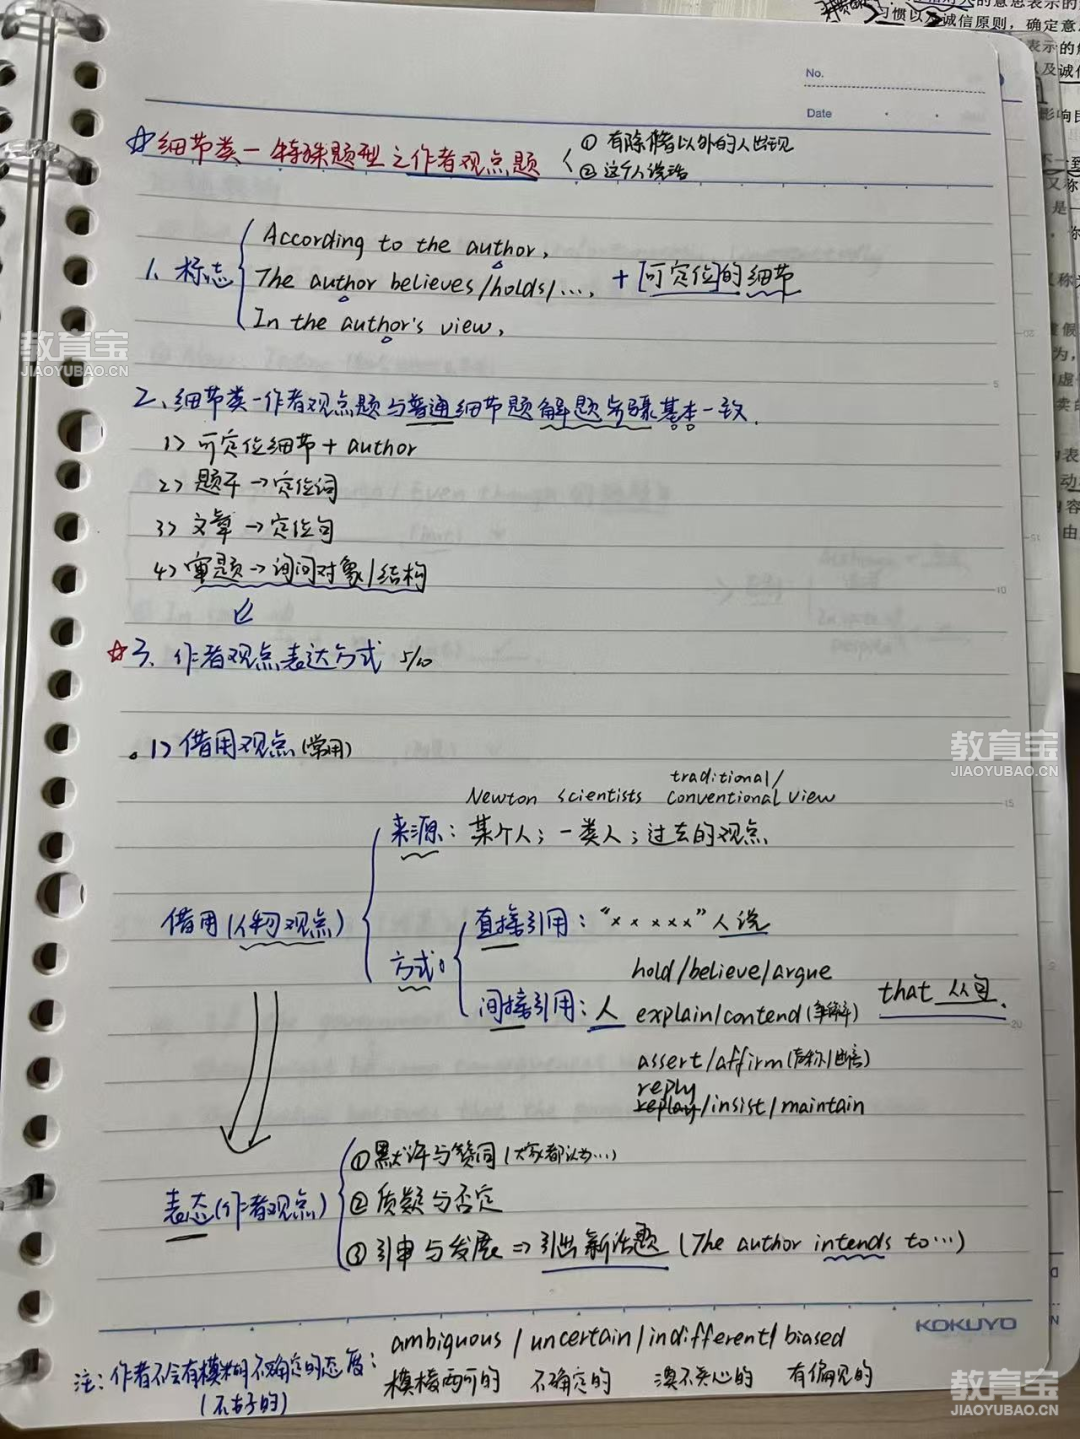 No.
Date
☆细节类一特殊题型之作者观点题
① 有除作者以外的人出现
② 这个人说话
1、标志
According to the author,
The author believes/holds/…,
In the author's view,
+ [可定位]的细节
2、细节类-作者观点题与普通细节题解题步骤基本一致.
1> 可定位细节 + author
2> 题干 → 定位词
3> 文章 → 定位句
4> 审题 → 询问对象/结构
☆3、作者观点表达方式 5/10
1> 借用观点(常用)
traditional/
Newton scientists conventional view
来源: 某个人; 一类人; 过去的观点
借用(人物观点)
方式:
直接引用: “× × × × ×” 人说
hold/believe/argue
间接引用: 人 explain/contend(争辩) that 从句.
assert/affirm(声称/断言)
reply
/insist/maintain
表态(作者观点)
① 默许与赞同(大家都认为…)
② 质疑与否定
③ 引申与发展 ⇒ 引出新话题 (The author intends to…)
KOKUYO
注: 作者不会有模糊不确定的态度:
(不好的)
ambiguous / uncertain / indifferent / biased
模棱两可的 不确定的 漠不关心的 有偏见的
教育宝
JIAOYUBAO.CN
教育宝
JIAOYUBAO.CN
教育宝
JIAOYUBAO.CN